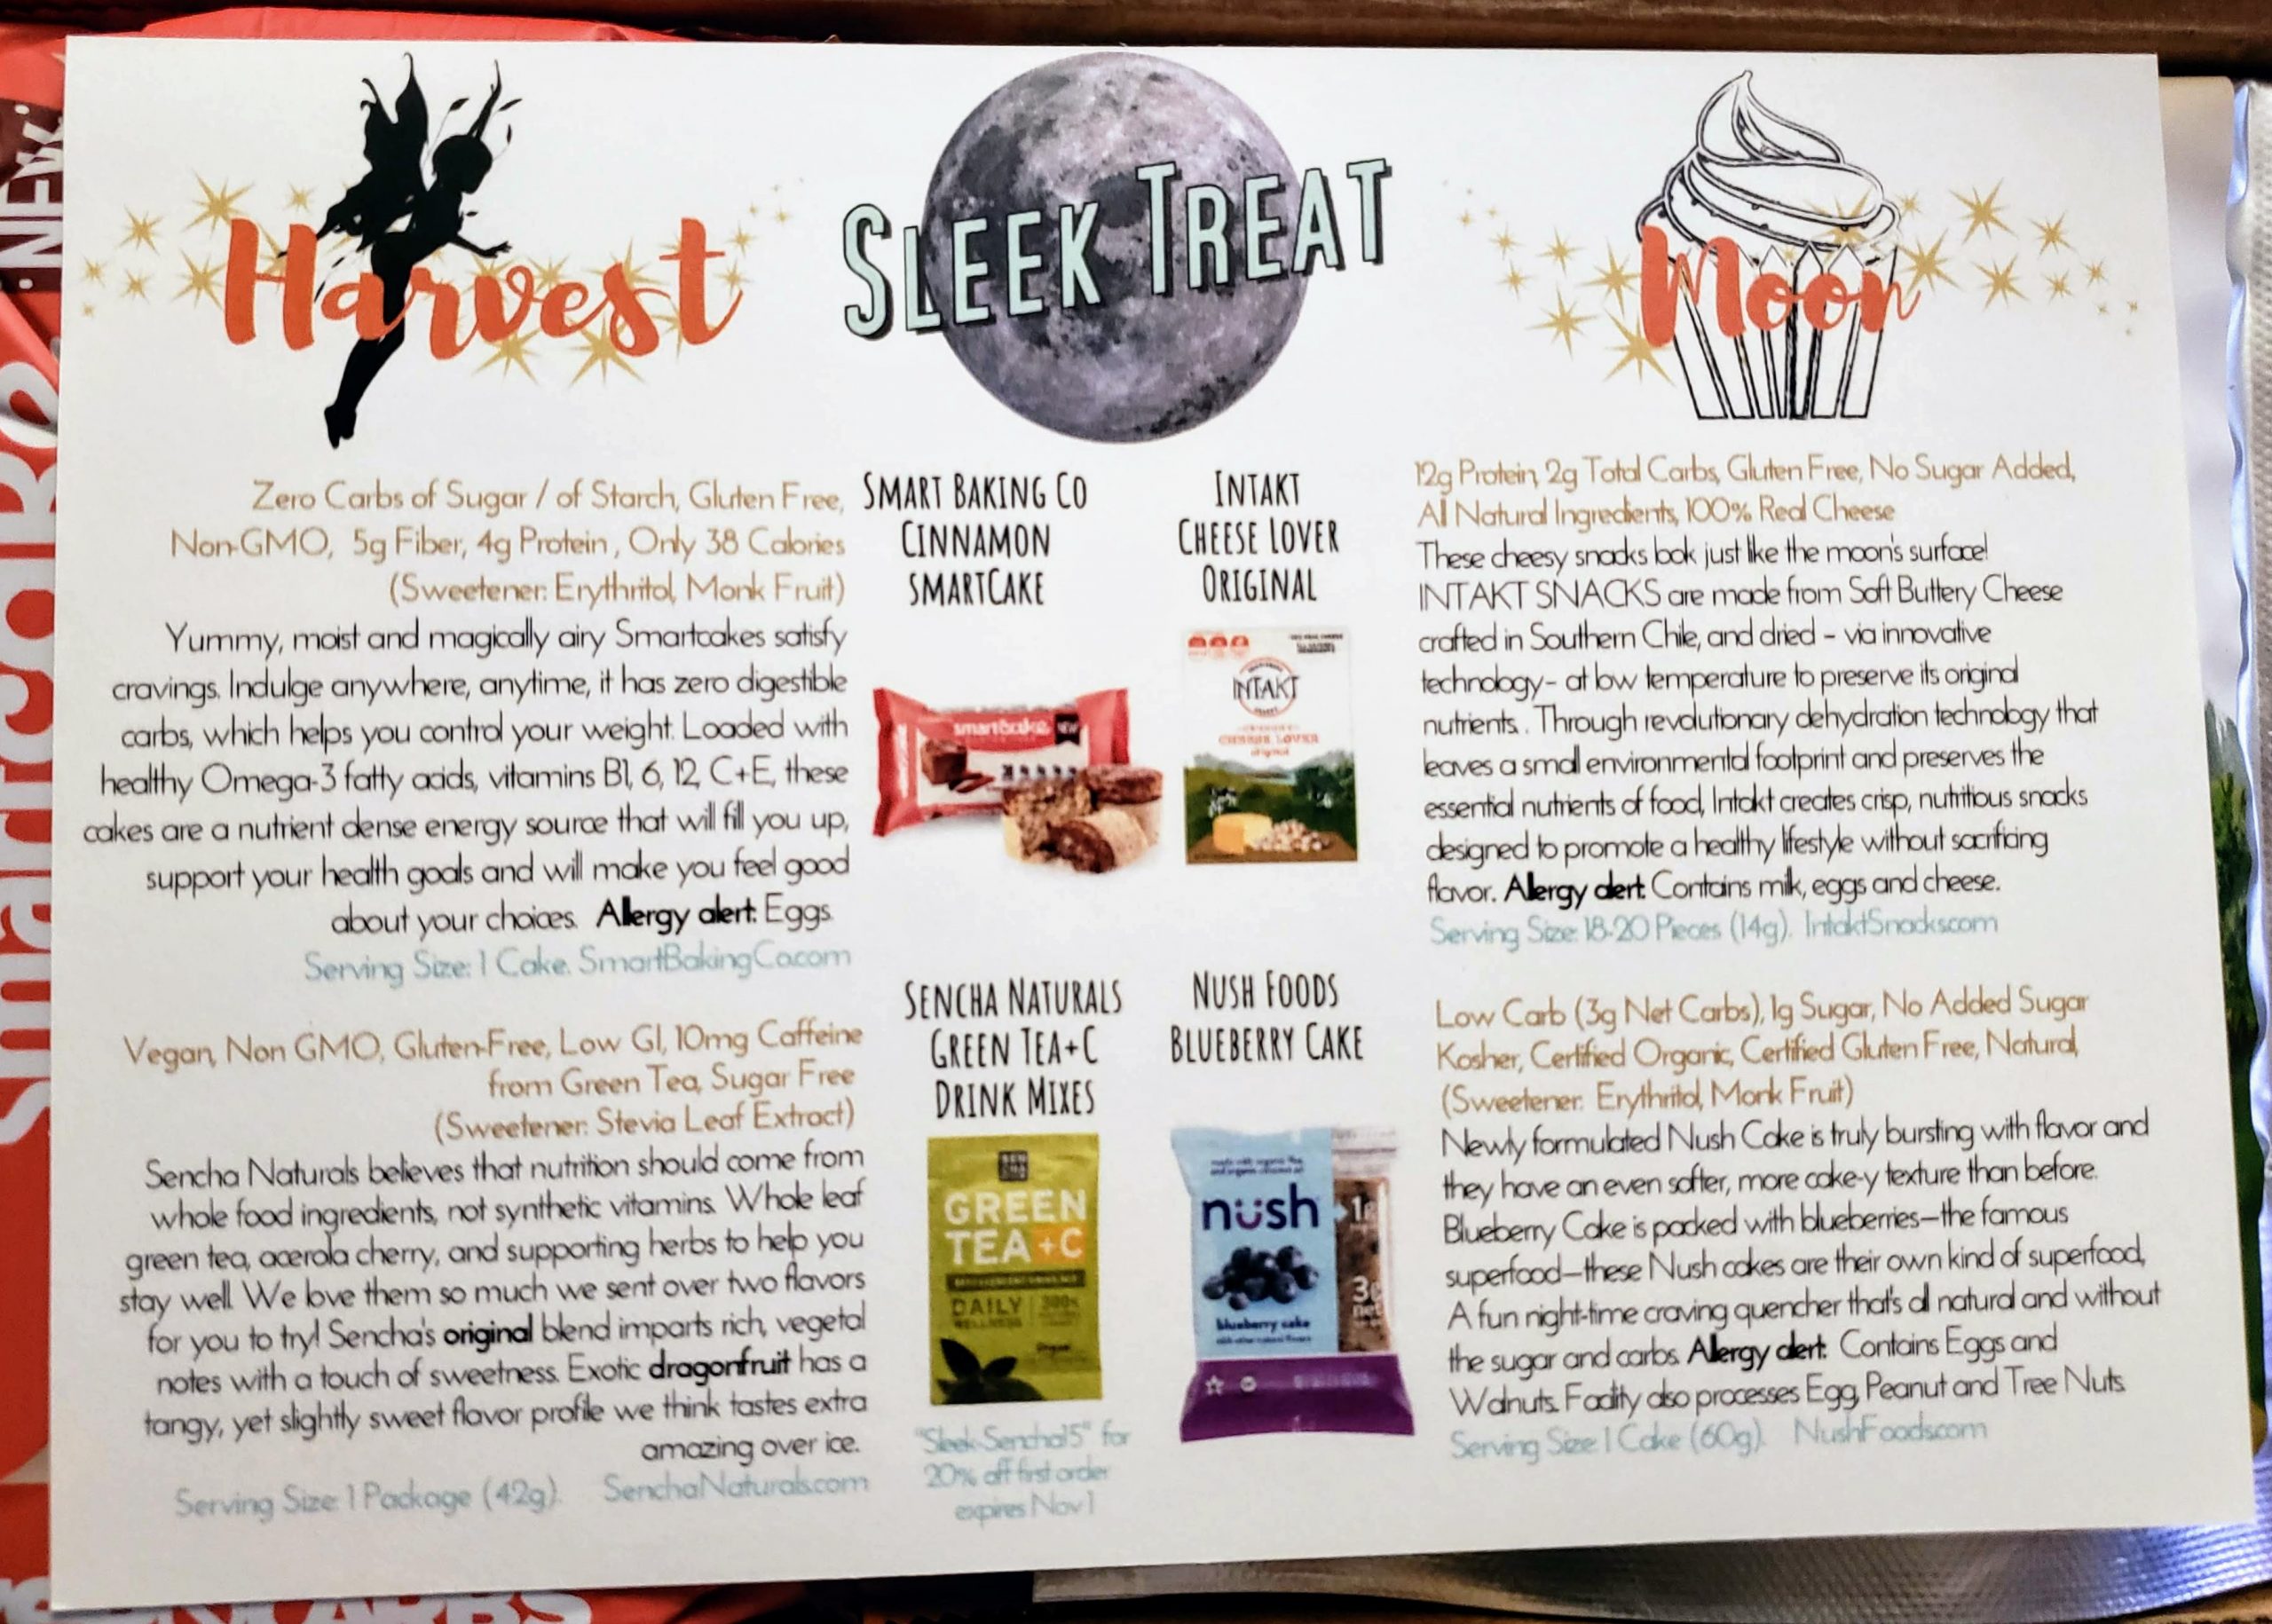 Harvest
SLEEK TREAT
Moon
Zero Carbs of Sugar / of Starch, Gluten Free,
Non-GMO, 5g Fiber, 4g Protein, Only 38 Calories
(Sweetener: Erythritol, Monk Fruit)
Yummy, moist and magically airy Smartcakes satisfy
cravings. Indulge anywhere, anytime, it has zero digestible
carbs, which helps you control your weight. Loaded with
healthy Omega-3 fatty acids, vitamins B1, 6, 12, C+E, these
cakes are a nutrient dense energy source that will fill you up,
support your health goals and will make you feel good
about your choices. Allergy alert: Eggs
Serving Size: 1 Cake. SmartBakingCo.com
SMART BAKING CO
CINNAMON
SMARTCAKE
smartcake NEW
INTAKT
CHEESE LOVER
ORIGINAL
INTAKT
CHEESE LOVER
original
12g Protein, 2g Total Carbs, Gluten Free, No Sugar Added,
All Natural Ingredients, 100% Real Cheese
These cheesy snacks look just like the moon's surface!
INTAKT SNACKS are made from Soft Buttery Cheese
crafted in Southern Chile, and dried – via innovative
technology- at low temperature to preserve its original
nutrients. . Through revolutionary dehydration technology that
leaves a small environmental footprint and preserves the
essential nutrients of food, Intakt creates crisp, nutritious snacks
designed to promote a healthy lifestyle without sacrificing
flavor. Allergy alert: Contains milk, eggs and cheese.
Serving Size: 18-20 Pieces (14g). IntaktSnacks.com
Vegan, Non GMO, Gluten-Free, Low GI, 10mg Caffeine
from Green Tea, Sugar Free
(Sweetener: Stevia Leaf Extract)
Sencha Naturals believes that nutrition should come from
whole food ingredients, not synthetic vitamins. Whole leaf
green tea, acerola cherry, and supporting herbs to help you
stay well. We love them so much we sent over two flavors
for you to try! Sencha's original blend imparts rich, vegetal
notes with a touch of sweetness. Exotic dragonfruit has a
tangy, yet slightly sweet flavor profile we think tastes extra
amazing over ice.
Serving Size: 1 Package (42g). SenchaNaturals.com
SENCHA NATURALS
GREEN TEA+C
DRINK MIXES
SEN
CHA
GREEN
TEA +C
DAILY
WELLNESS
"Sleek-Sencha15" for
20% off first order
expires Nov 1
NUSH FOODS
BLUEBERRY CAKE
nush
blueberry cake
1g
3g
Low Carb (3g Net Carbs), 1g Sugar, No Added Sugar
Kosher, Certified Organic, Certified Gluten Free, Natural,
(Sweetener: Erythritol, Monk Fruit)
Newly formulated Nush Cake is truly bursting with flavor and
they have an even softer, more cake-y texture than before.
Blueberry Cake is packed with blueberries—the famous
superfood—these Nush cakes are their own kind of superfood,
A fun night-time craving quencher that's all natural and without
the sugar and carbs. Allergy alert: Contains Eggs and
Walnuts. Facility also processes Egg, Peanut and Tree Nuts
Serving Size: 1 Cake (60g). NushFoods.com
NEW